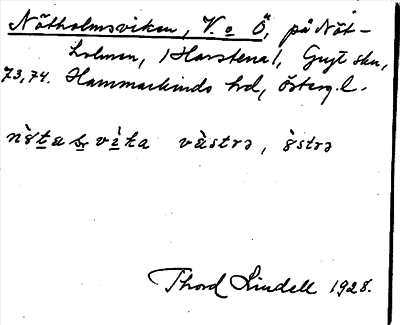 Nötholmsviken, V. o Ö, på Nöt-
holmen, (Harstena), Gryt skn,
73,74. Hammarkinds hd, Österg. l.
västrə, östrə
Thord Lindell 1928.